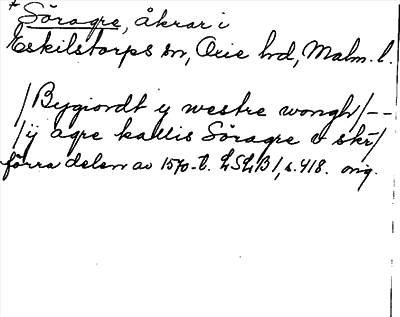 *Söragre, åkrar i
Eskilstorps sn, Oxie hd, Malm. l.
/Bygiordt ÿ westre wongh/--
/ÿ agre kallis Söragre v skr/
förra delen av 1570-t. LSLB 1, s. 418. orig.